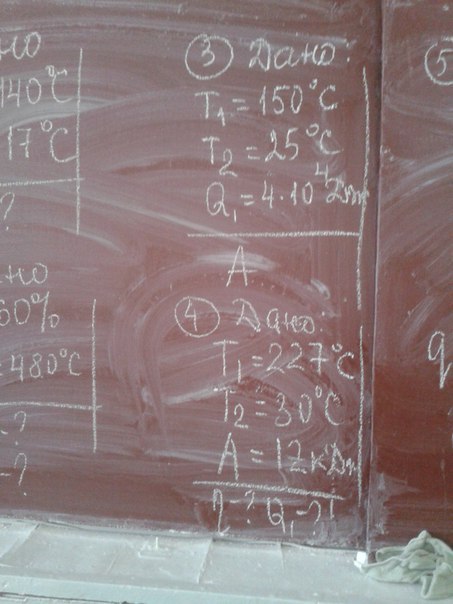 ано
140°C
17°C
?
ано
60%
=480°C
-?
-?
③ Дано:
T₁ = 150°C
T₂ = 25°C
Q₁ = 4·10⁴ Дж
A
④ Дано:
T₁ = 227°C
T₂ = 30°C
A = 12кДж
η-? Q₁-?
⑤
q